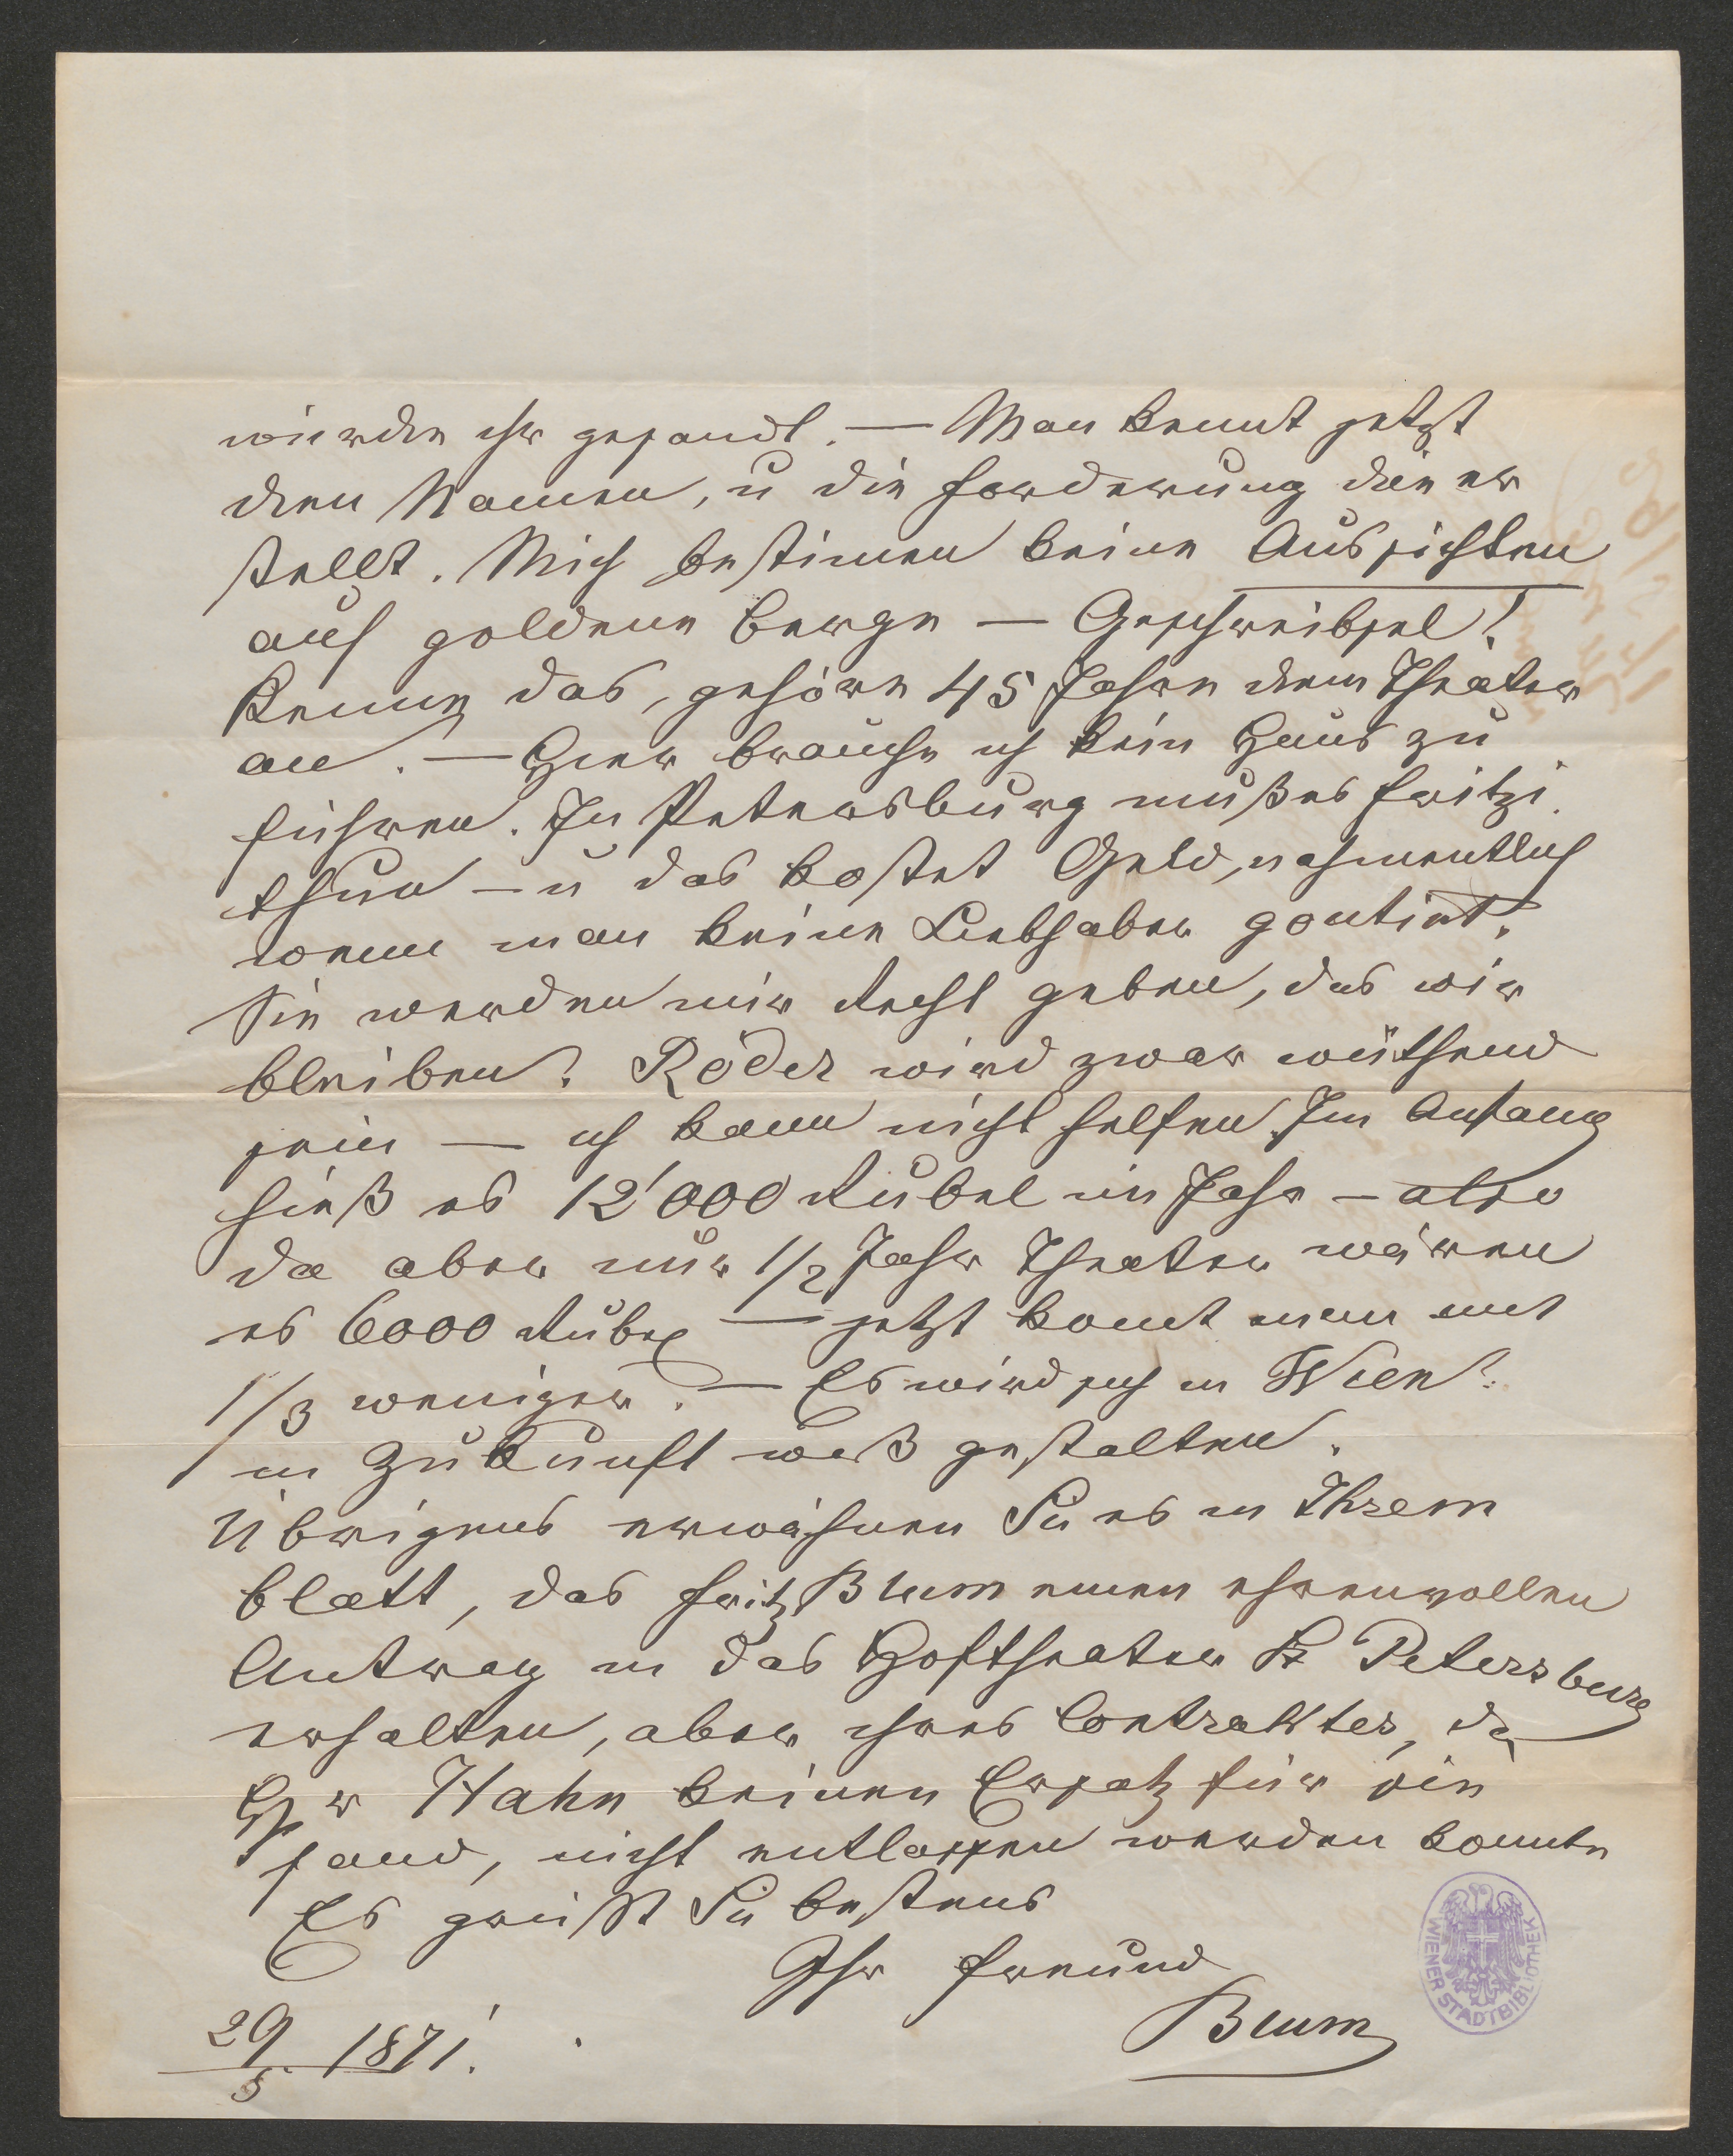 würden ihr gesandt. — Man kennt jetzt
den Namen, u die Forderung die er
stellt. Mich bestimen keine Aussichten
auf goldene Berge — Geschreibsel!
Kenne das, gehöre 45 Jahre dem Theater
an. — Hier brauche ich kein Haus zu
führen. In Petersburg muß es Fritzi
thun — u das kostet Geld, nahmentlich
wenn man keine Liebhaber goutirt.
Sie werden mir Recht geben, das wir
bleiben? Röder wird zwar wüthend
sein — ich kann nicht helfen. Im Anfang
hieß es 12'000 Rubel im Jahr — also
da aber nur 1/2 Jahr Theater wären
es 6000 Rubel — jetzt komt man mit
1/3 weniger. — Es wird sich in Wien
in Zukunft was gestalten.
Übrigens erwähnen Sie es in Ihrem
Blatt, das Fritz Blum einen ehrenvollen
Antrag in das Hoftheater St Petersburg
erhalten, aber ihres Contraktes, da
Hr Hahn keinen Ersatz für sie
fand, nicht entlassen werden konnte
Es grüßt Sie bestens
Ihr Freund
Blum
29/5 1871.
WIENER STADTBIBLIOTHEK